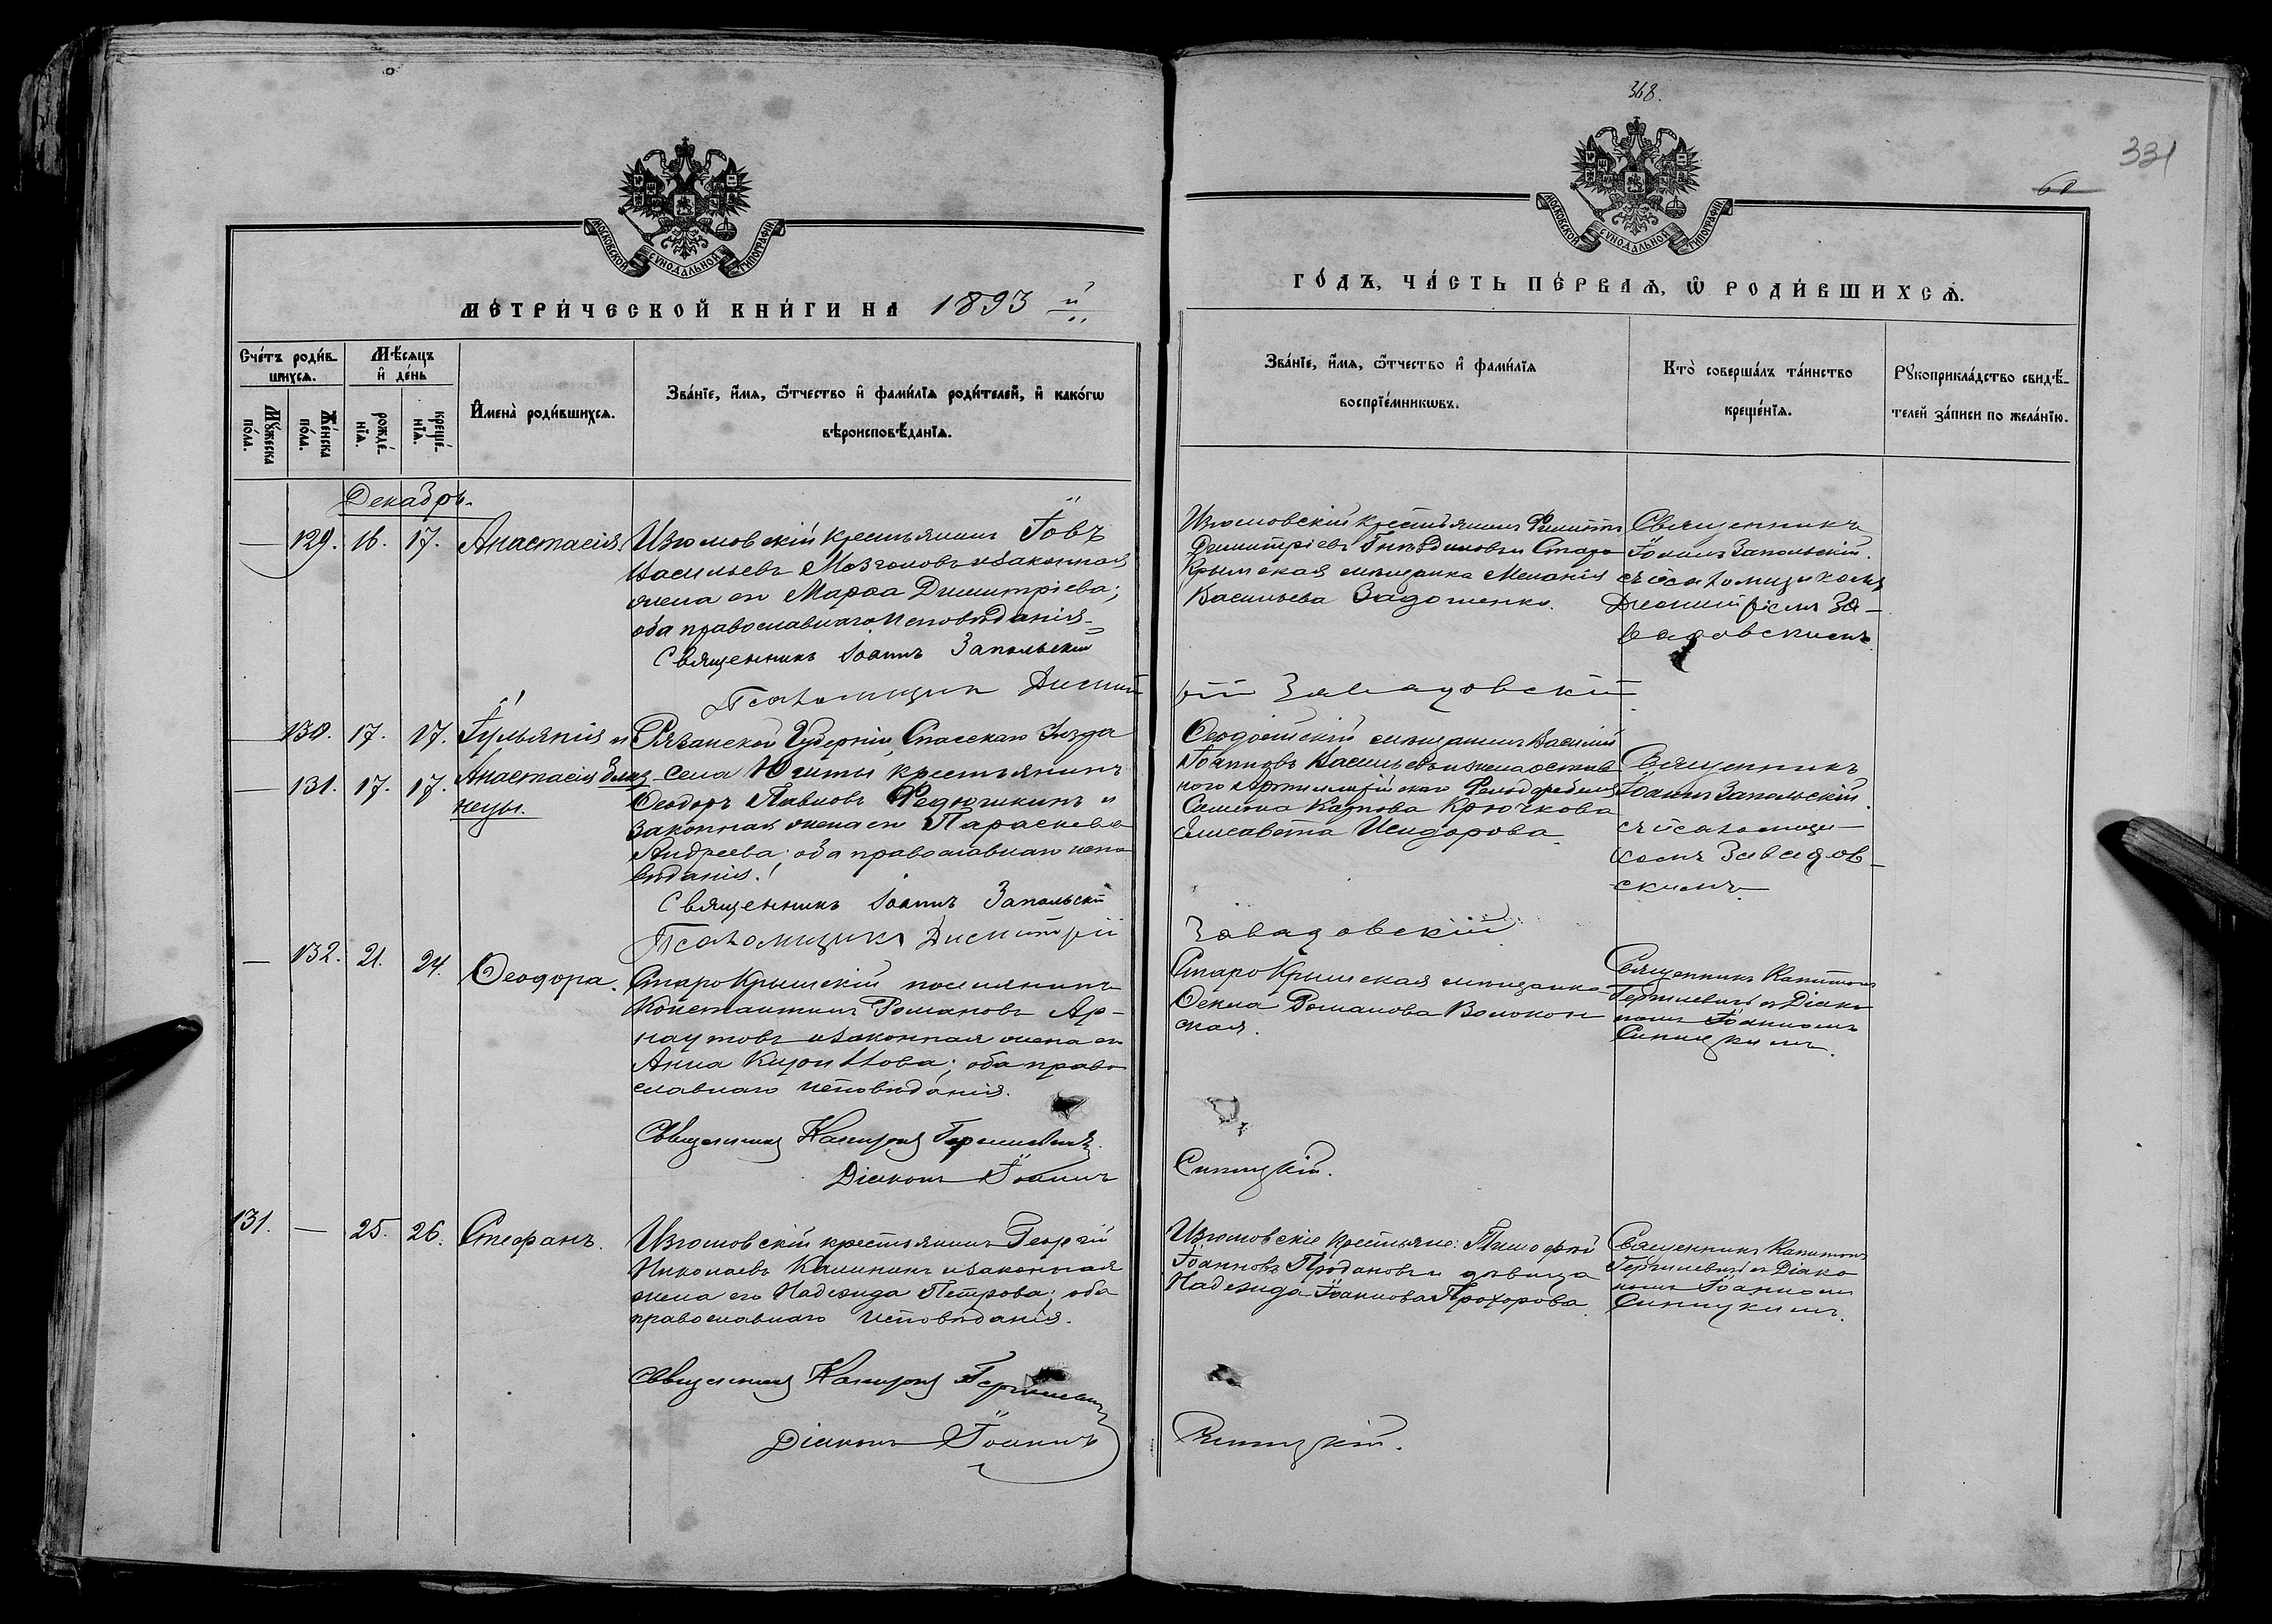 368.
331
МОСКОВСКОЙ СѴНОДАЛЬНОЙ ТИПОГРАФІИ
МОСКОВСКОЙ СѴНОДАЛЬНОЙ ТИПОГРАФІИ
МЕТРИ́ЧЕСКОЙ КНИ́ГИ НА 1893 й
ГО́ДЪ, ЧА́СТЬ ПЕ́РВАѦ, Ѽ РОДИ́ВШИХСѦ.
Сче́тъ роди́в-
шихсѧ.
Мꙋ́жеска по́ла.
Же́нска по́ла.
Мѣ́сѧцъ
и҆ де́нь
рожде́-
нїѧ.
креще́-
нїѧ.
И҆мена̀ роди́вшихсѧ.
Зва́нїе, и҆́мѧ, ѻ҆́тчество и҆ фами́лїѧ роди́телей, и҆ како́гѡ
вѣроисповѣ́данїѧ.
Зва́нїе, и҆́мѧ, ѻ҆́тчество и҆ фами́лїѧ
воспрїе́мникѡвъ.
Кто̀ соверша́лъ та́инство
креще́нїѧ.
Рꙋкоприкла́дство свидѣ́-
телей за́писи по жела́нїю.
Декабрь.
— 129. 16. 17. Анастасія
Изюмовскій крестьянинъ Іовъ
Васильевъ Мозговъ и законная
жена его Марѳа Димитріева;
оба православнаго исповѣданія.
Священникъ Іоаннъ Запольскій
Псаломщикъ Димит
Изюмовскій крестьянинъ
Димитріевъ и Старо
Крымская мѣщанка Меланія
Васильева Задошенко.
Священникъ
Іоаннъ Запольскій
съ псаломщикомъ
Димитріемъ За-
вадовскимъ.
рій Завадовскій
— 130. 17. 17. Іульянія и
— 131. 17. 17. Анастасія близ-
нецы.
Рязанской Губерніи Спасскаго Уѣзда
села Ижевскаго крестьянинъ
Ѳеодоръ Павловъ Федюшкинъ и
законная жена его Параскева
Андреева; оба православнаго испо
вѣданія.
Священникъ Іоаннъ Запольскій
Псаломщикъ Димитрій
Ѳеодосійскій мѣщанинъ Василій
Іоанновъ Васильевъ и жена отстав
ного Артиллерійскаго
Симеона Карпова Крючкова
Елисавета Исидорова.
Священникъ
Іоаннъ Запольскій
съ псаломщи-
комъ Завадов-
скимъ.
Завадовскій
— 132. 21. 24. Ѳеодора.
Старо Крымскій поселянинъ
Константинъ Романовъ Ар-
наутовъ и законная жена его
Анна Кириллова; оба право
славнаго исповѣданія.
Священникъ Капитонъ
Діаконъ Іоаннъ
Старо Крымская мѣщанка
Ѳекла Романова Волокон
ская.
Священникъ Капитонъ
съ Діако
номъ Іоанномъ
Синицкимъ.
Синицкій.
131. — 25. 26. Стефанъ.
Изюмовскій крестьянинъ Георгій
Николаевъ Калинкинъ и законная
жена его Надежда Петрова; оба
православнаго исповѣданія.
Священникъ Капитонъ
Діаконъ Іоаннъ
Изюмовскіе крестьяне: Тимофей
Іоанновъ Продановъ и дѣвица
Надежда Іоаннова Прохорова
Священникъ Капитонъ
съ Діако
номъ Іоанномъ
Синицкимъ.
Синицкій.